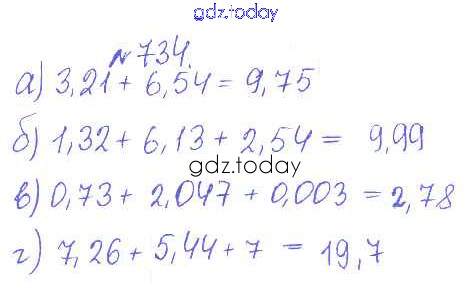 gdz.today
№734.
а) 3,21 + 6,54 = 9,75
б) 1,32 + 6,13 + 2,54 = 9,99
gdz.today
в) 0,73 + 2,047 + 0,003 = 2,78
г) 7,26 + 5,44 + 7 = 19,7